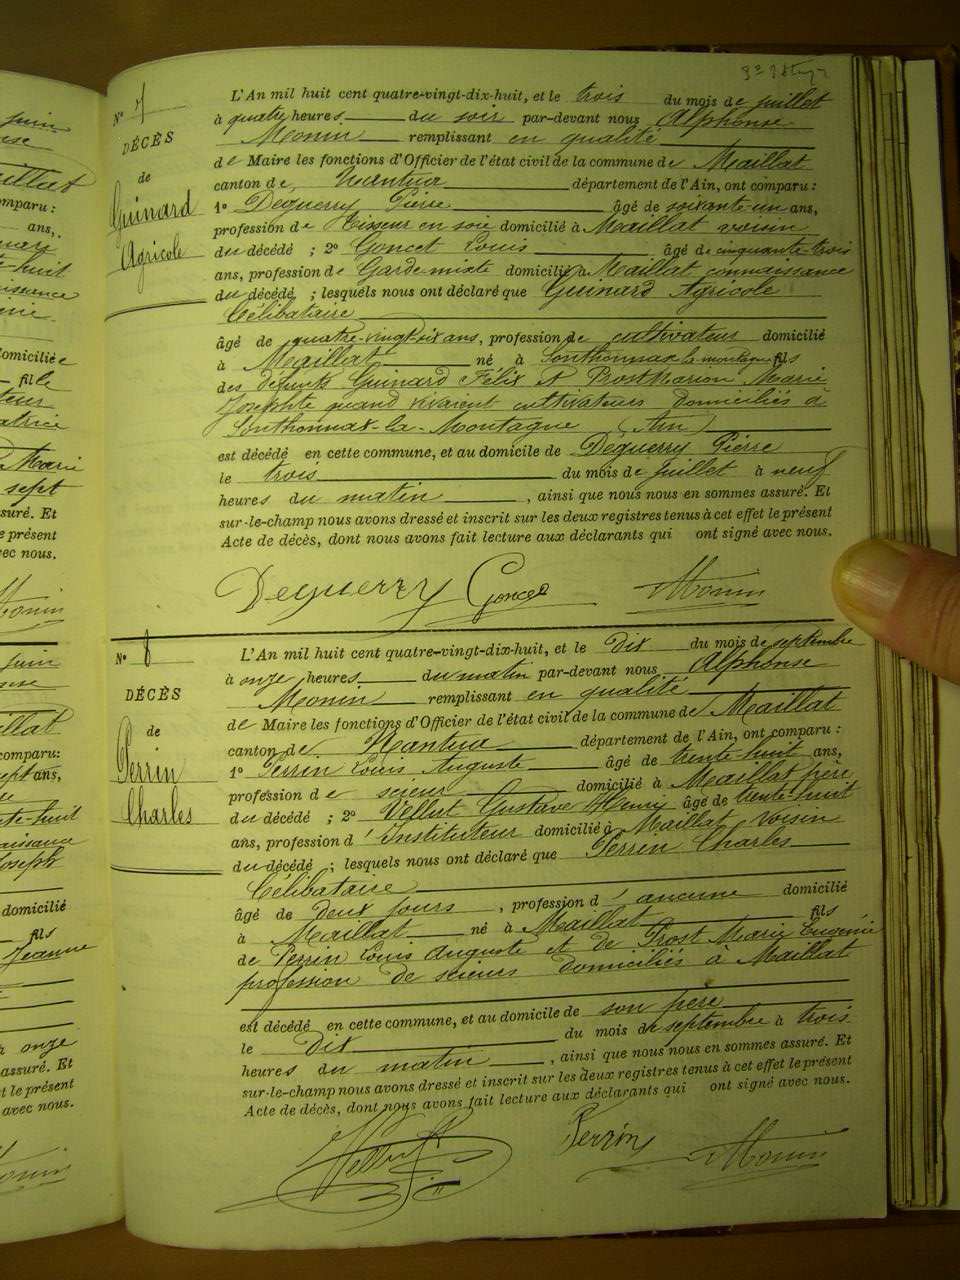 N° 7
DÉCÈS
de
Guinard
Agricole
L'An mil huit cent quatre-vingt-dix-huit, et le trois du mois de juillet
à quatre heures du soir par-devant nous Alphonse
Monin remplissant en qualité
de Maire les fonctions d'Officier de l'état civil de la commune de Maillat
canton de Nantua département de l'Ain, ont comparu :
1° Deguerry Pierre âgé de soixante un ans,
profession de Tisseur en soie domicilié à Maillat voisin
du décédé ; 2° Goncet Louis âgé de cinquante-trois
ans, profession de Garde mixte domicilié à Maillat connaissance
du décédé ; lesquels nous ont déclaré que Guinard Agricole
Célibataire
âgé de quatre-vingt-six ans, profession de cultivateur domicilié
à Maillat né à Sonthonnax la montagne fils
des défunts Guinard Félix et Prost Marion Marie
Josephte quand vivaient cultivateurs domiciliés à
Sonthonnax-la-Montagne (Ain)
est décédé en cette commune, et au domicile de Deguerry Pierre
le trois du mois de juillet à neuf
heures du matin , ainsi que nous nous en sommes assuré. Et
sur-le-champ nous avons dressé et inscrit sur les deux registres tenus à cet effet le présent
Acte de décès, dont nous avons fait lecture aux déclarants qui ont signé avec nous.
Deguerry Goncet Monin
N° 8
DÉCÈS
de
Perrin
Charles
L'An mil huit cent quatre-vingt-dix-huit, et le dix du mois de septembre
à onze heures du matin par-devant nous Alphonse
Monin remplissant en qualité
de Maire les fonctions d'Officier de l'état civil de la commune de Maillat
canton de Nantua département de l'Ain, ont comparu :
1° Perrin Louis Auguste âgé de trente-huit ans,
profession de scieur domicilié à Maillat père
du décédé ; 2° Vellut Gustave Henry âgé de trente-huit
ans, profession d'Instituteur domicilié à Maillat voisin
du décédé ; lesquels nous ont déclaré que Perrin Charles
Célibataire
âgé de deux jours , profession d'aucune domicilié
à Maillat né à Maillat fils
de Perrin Louis Auguste et de Prost Marie Eugénie
profession de scieurs domiciliés à Maillat
est décédé en cette commune, et au domicile de son père
le Dix du mois de septembre à trois
heures du matin , ainsi que nous nous en sommes assuré. Et
sur-le-champ nous avons dressé et inscrit sur les deux registres tenus à cet effet le présent
Acte de décès, dont nous avons fait lecture aux déclarants qui ont signé avec nous.
Vellut Perrin Monin